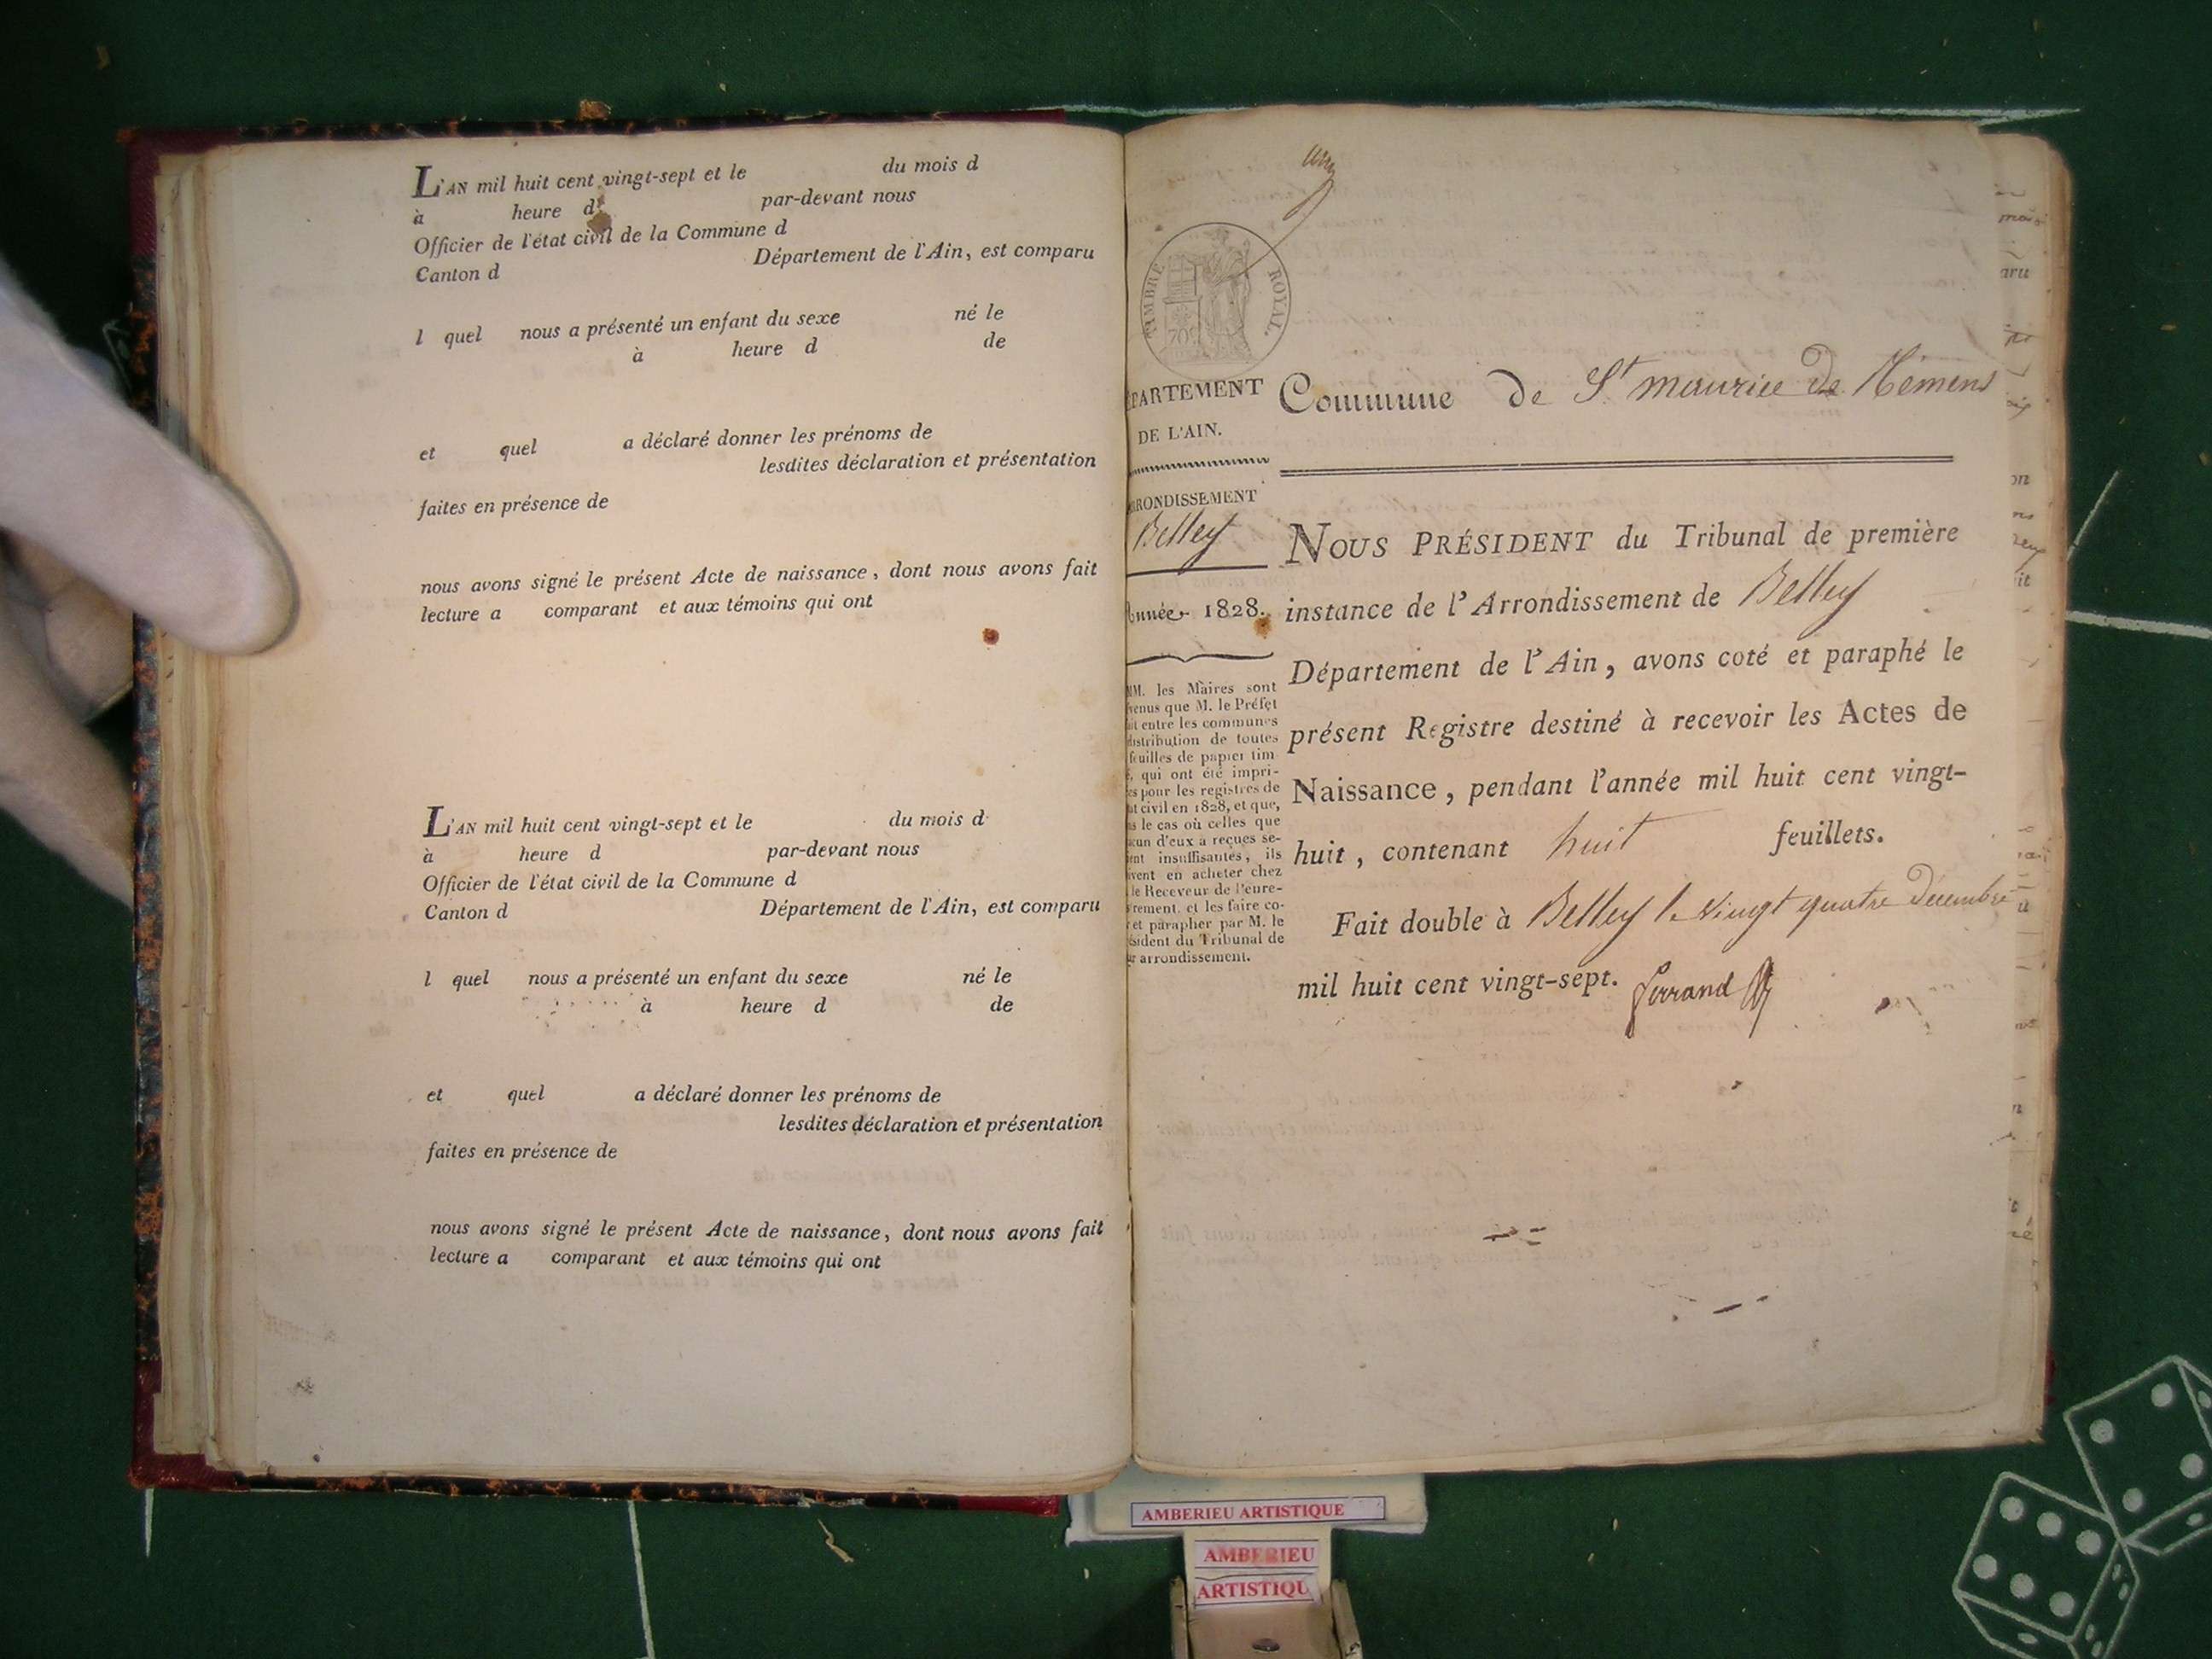 L'AN mil huit cent vingt-sept et le du mois d
à heure d par-devant nous
Officier de l'état civil de la Commune d
Canton d Département de l'Ain, est comparu
l quel nous a présenté un enfant du sexe né le
à heure d de
et quel a déclaré donner les prénoms de
lesdites déclaration et présentation
faites en présence de
nous avons signé le présent Acte de naissance, dont nous avons fait
lecture a comparant et aux témoins qui ont
L'AN mil huit cent vingt-sept et le du mois d
à heure d par-devant nous
Officier de l'état civil de la Commune d
Canton d Département de l'Ain, est comparu
l quel nous a présenté un enfant du sexe né le
à heure d de
et quel a déclaré donner les prénoms de
lesdites déclaration et présentation
faites en présence de
nous avons signé le présent Acte de naissance, dont nous avons fait
lecture a comparant et aux témoins qui ont
TIMBRE ROYAL.
70c
PARTEMENT
DE L'AIN.
RONDISSEMENT
Belley
Année 1828.
MM. les Maires sont
venus que M. le Préfet
it entre les communes
distribution de toutes
feuilles de papier tim-
é, qui ont été impri-
es pour les registres de
at civil en 1828, et que,
s le cas où celles que
acun d'eux a reçues se-
ent insuffisantes, ils
ivent en acheter chez
le Receveur de l'enre-
rement, et les faire co-
r et parapher par M. le
ésident du Tribunal de
ur arrondissement.
Commune de St maurice de Rémens
NOUS PRÉSIDENT du Tribunal de première
instance de l'Arrondissement de Belley
Département de l'Ain, avons coté et paraphé le
présent Registre destiné à recevoir les Actes de
Naissance, pendant l'année mil huit cent vingt-
huit, contenant huit feuillets.
Fait double à Belley le vingt quatre Decembre
mil huit cent vingt-sept. ferrand
AMBERIEU ARTISTIQUE
AMBERIEU
ARTISTIQU